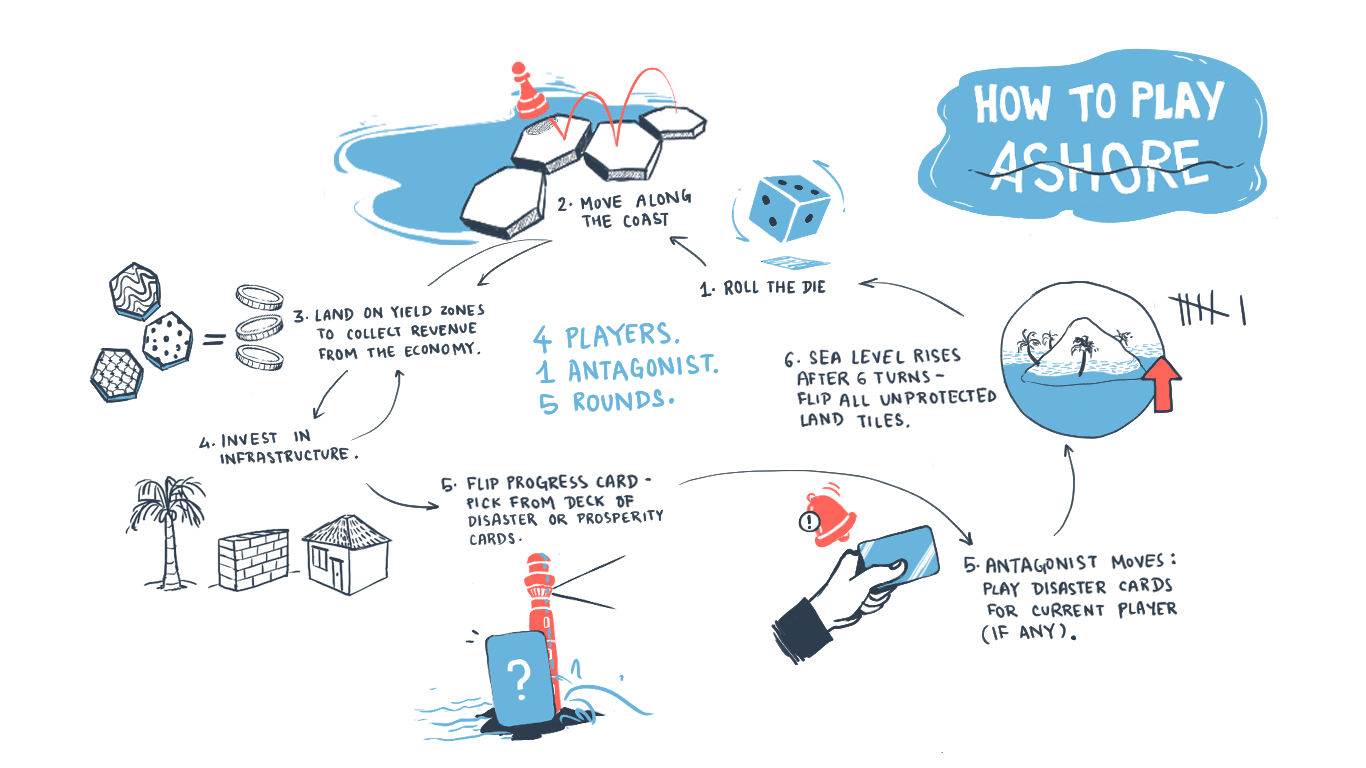 HOW TO PLAY
ASHORE
1. ROLL THE DIE
2. MOVE ALONG
THE COAST
3. LAND ON YIELD ZONES
TO COLLECT REVENUE
FROM THE ECONOMY.
4. INVEST IN
INFRASTRUCTURE.
5. FLIP PROGRESS CARD -
PICK FROM DECK OF
DISASTER OR PROSPERITY
CARDS.
?
5. ANTAGONIST MOVES:
PLAY DISASTER CARDS
FOR CURRENT PLAYER
(IF ANY).
!
6. SEA LEVEL RISES
AFTER 6 TURNS -
FLIP ALL UNPROTECTED
LAND TILES.
4 PLAYERS.
1 ANTAGONIST.
5 ROUNDS.
=